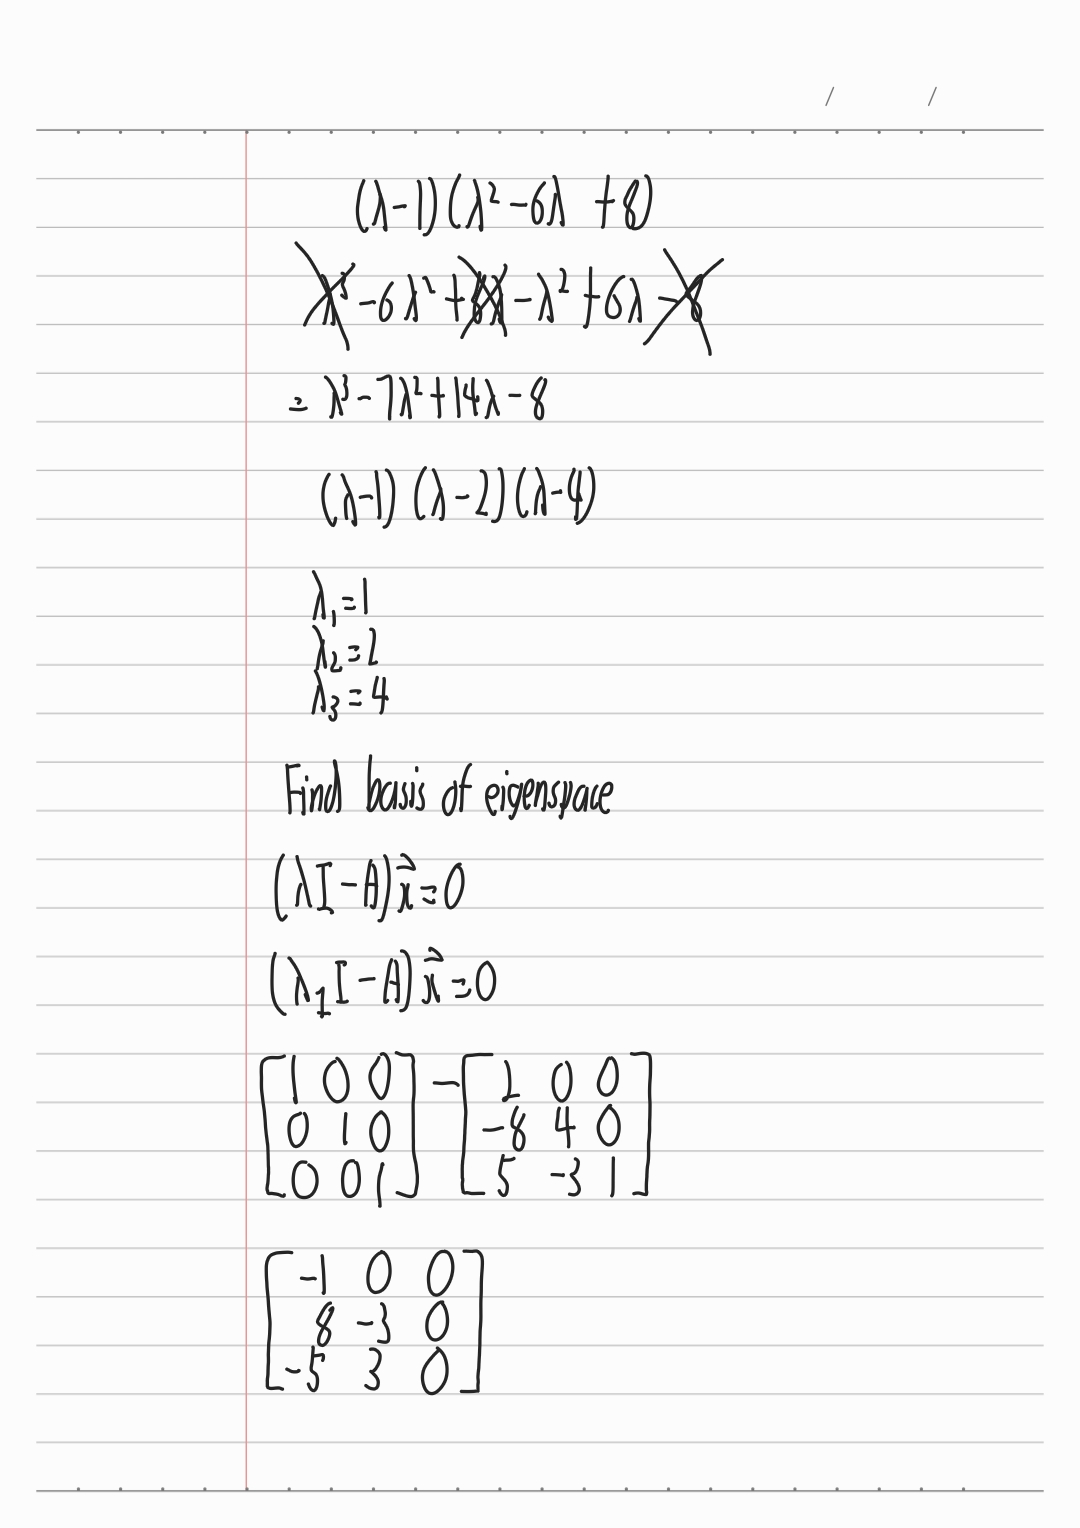 (λ-1)(λ²-6λ +8)
λ³-6λ²+8λ-λ²+6λ-8
= λ³-7λ²+14λ-8
(λ-1)(λ-2)(λ-4)
λ₁=1
λ₂=2
λ₃=4
Find basis of eigenspace
(λI-A)x⃗=0
(λ₁I-A)x⃗=0
[1 0 0] - [2 0 0]
[0 1 0] [-8 4 0]
[0 0 1] [5 -3 1]
[-1 0 0]
[8 -3 0]
[-5 3 0]